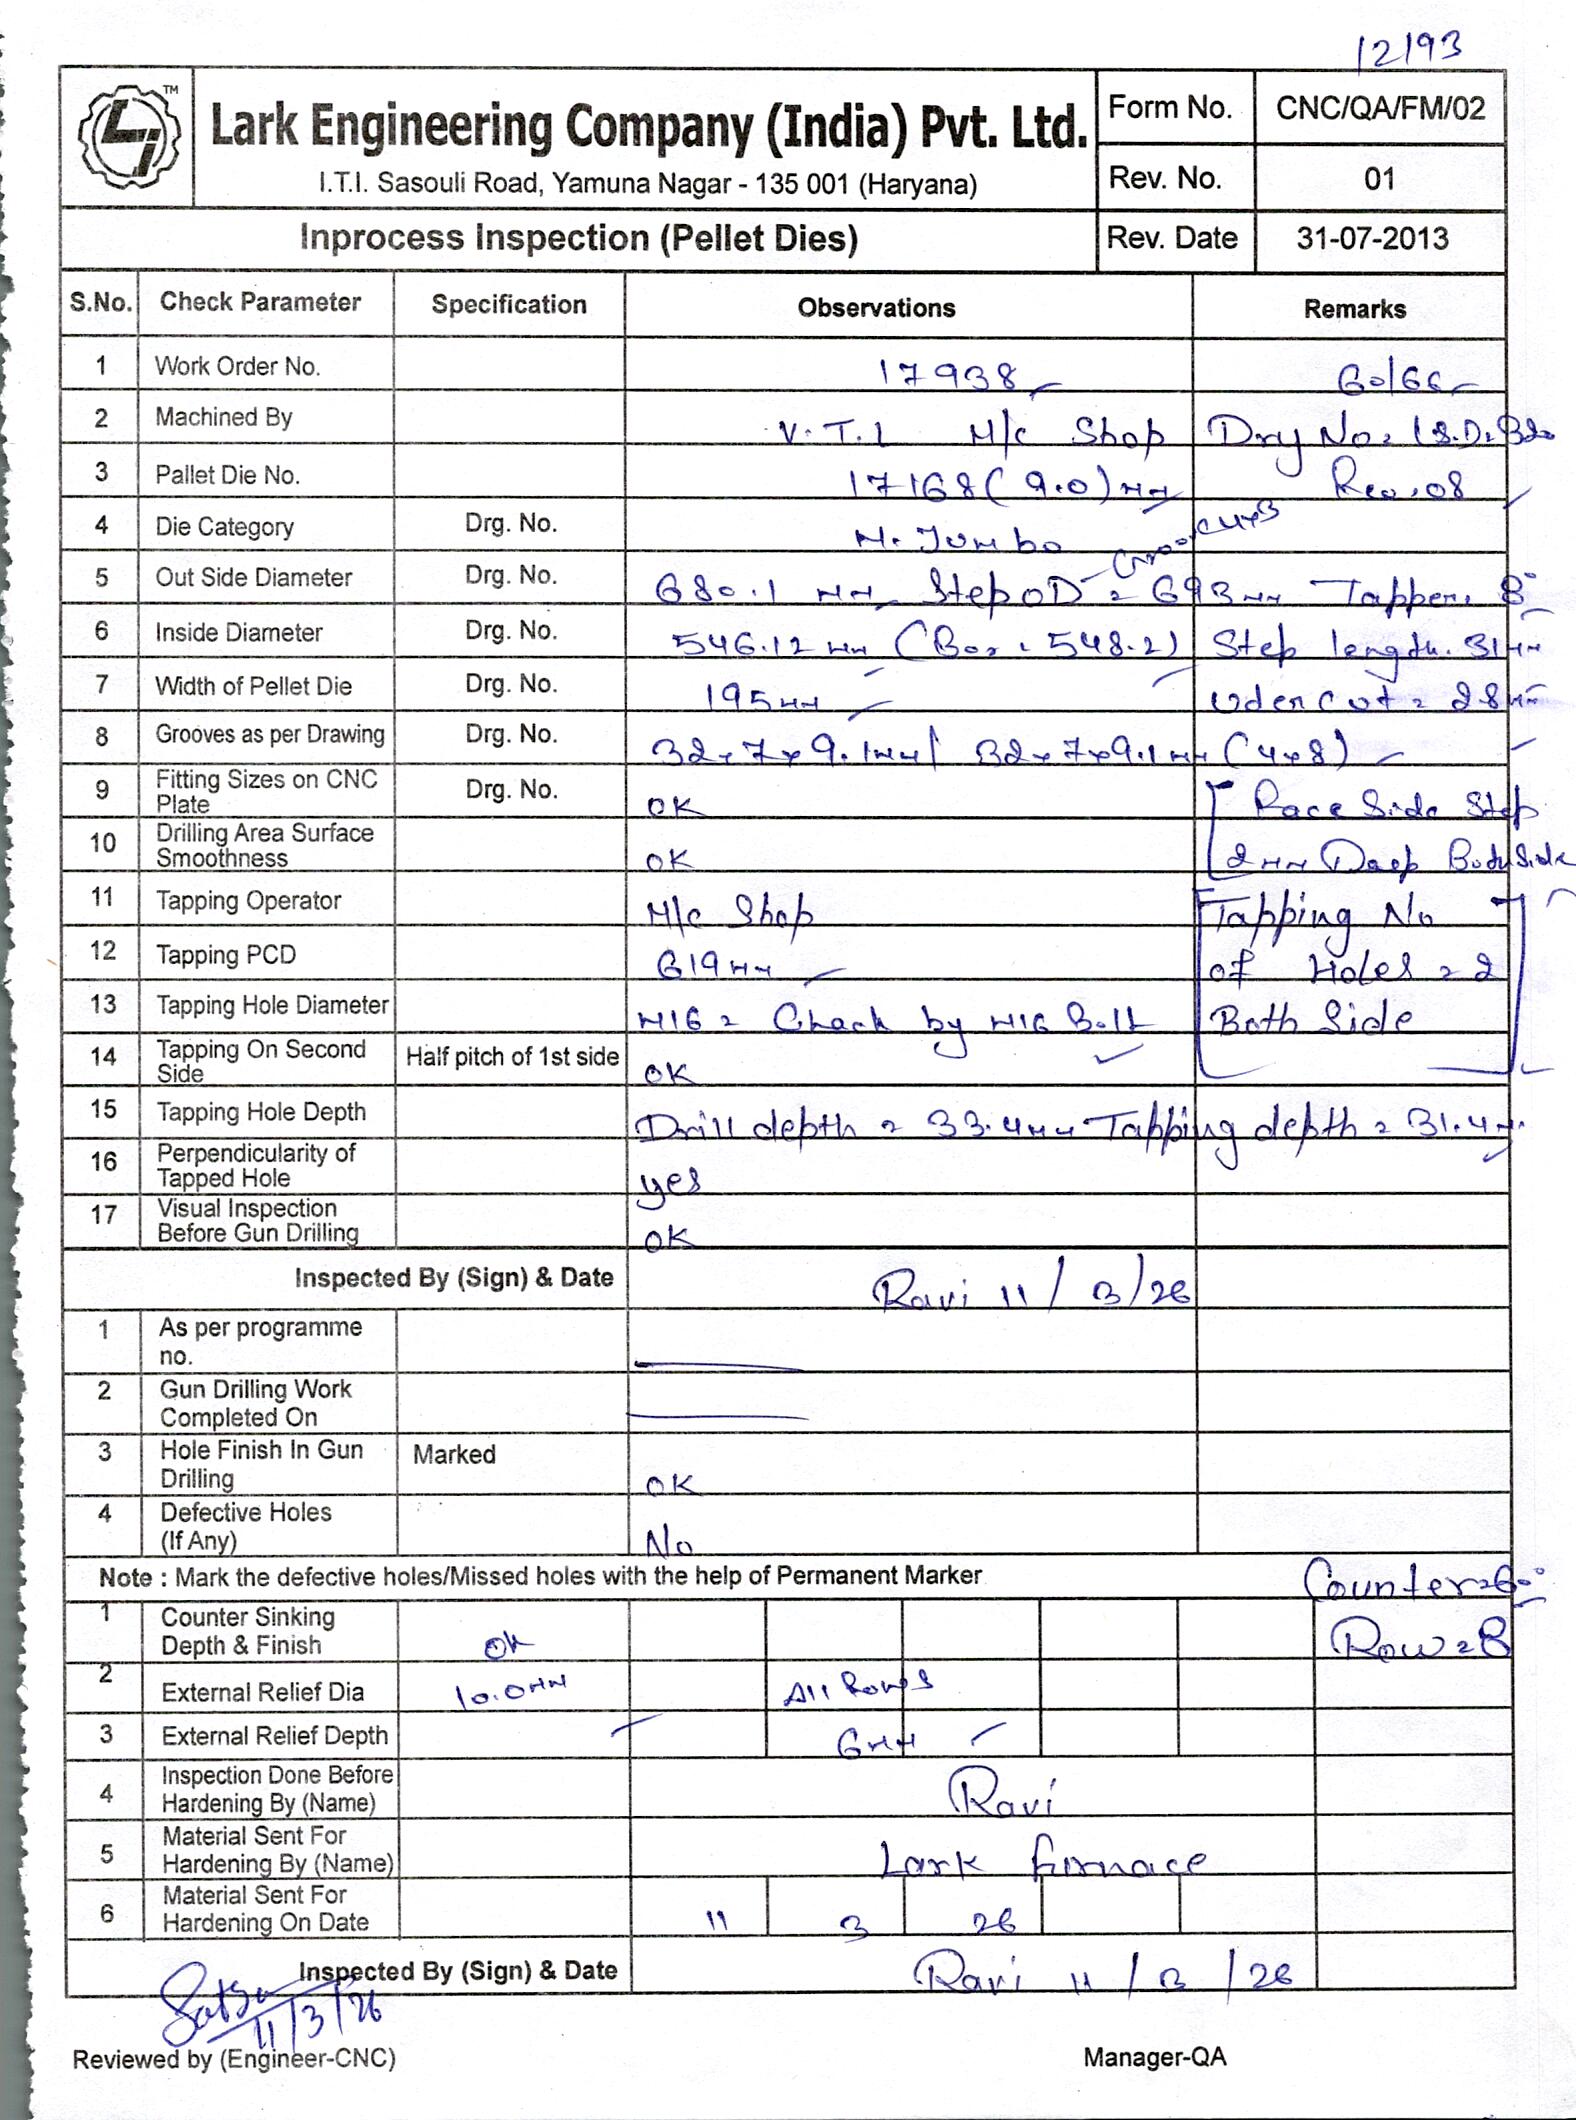 12193
TM
Lark Engineering Company (India) Pvt. Ltd.
I.T.I. Sasouli Road, Yamuna Nagar - 135 001 (Haryana)
Form No. CNC/QA/FM/02
Rev. No. 01
Inprocess Inspection (Pellet Dies) Rev. Date 31-07-2013
S.No. Check Parameter Specification Observations Remarks
1 Work Order No. 17938 60/66
2 Machined By V.T.L M/c Shop Dry No.
3 Pallet Die No. 17168 (9.0) mm Rev. 08
4 Die Category Drg. No. M. Jumbo
5 Out Side Diameter Drg. No. 680.1 mm Step OD = 693 mm Tapper. 8°
6 Inside Diameter Drg. No. 546.12 mm (Bor. 548.2) Step length. 31 mm
7 Width of Pellet Die Drg. No. 195 mm Uder Cut = 28 mm
8 Grooves as per Drawing Drg. No. 32x7x9.1mm/ 32x7x9.1mm (4x8)
9 Fitting Sizes on CNC Plate Drg. No. OK Race Side Step
10 Drilling Area Surface Smoothness OK 2mm Deep Body Side
11 Tapping Operator M/c Shop Tapping No
12 Tapping PCD 619 mm of Holes = 2
13 Tapping Hole Diameter M16 = Chack by M16 Bolt Both Side
14 Tapping On Second Side Half pitch of 1st side OK
15 Tapping Hole Depth Drill depth = 33.4mm Tapping depth = 31.4
16 Perpendicularity of Tapped Hole yes
17 Visual Inspection Before Gun Drilling OK
Inspected By (Sign) & Date Ravi 11/3/26
1 As per programme no.
2 Gun Drilling Work Completed On
3 Hole Finish In Gun Drilling Marked OK
4 Defective Holes (If Any) No
Note : Mark the defective holes/Missed holes with the help of Permanent Marker Counter=60°
1 Counter Sinking Depth & Finish OK Row=8
2 External Relief Dia 10.0mm All Rows
3 External Relief Depth 6mm
4 Inspection Done Before Hardening By (Name) Ravi
5 Material Sent For Hardening By (Name) Lark furnace
6 Material Sent For Hardening On Date 11 3 26
Inspected By (Sign) & Date Ravi 11/3/26
11/3/26
Reviewed by (Engineer-CNC) Manager-QA